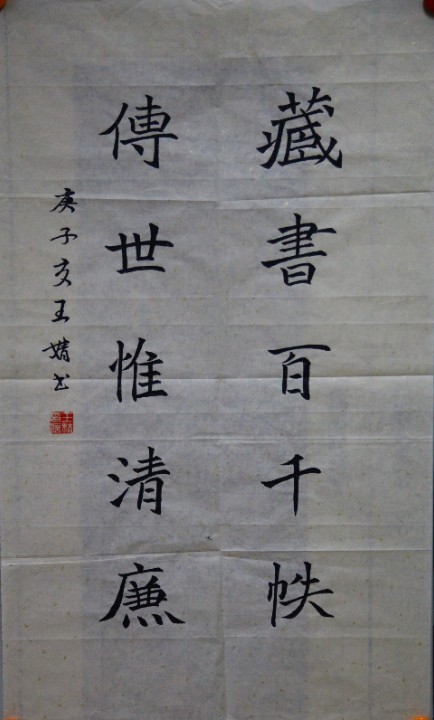 藏書百千帙
傳世惟清廉
庚子友王婧书